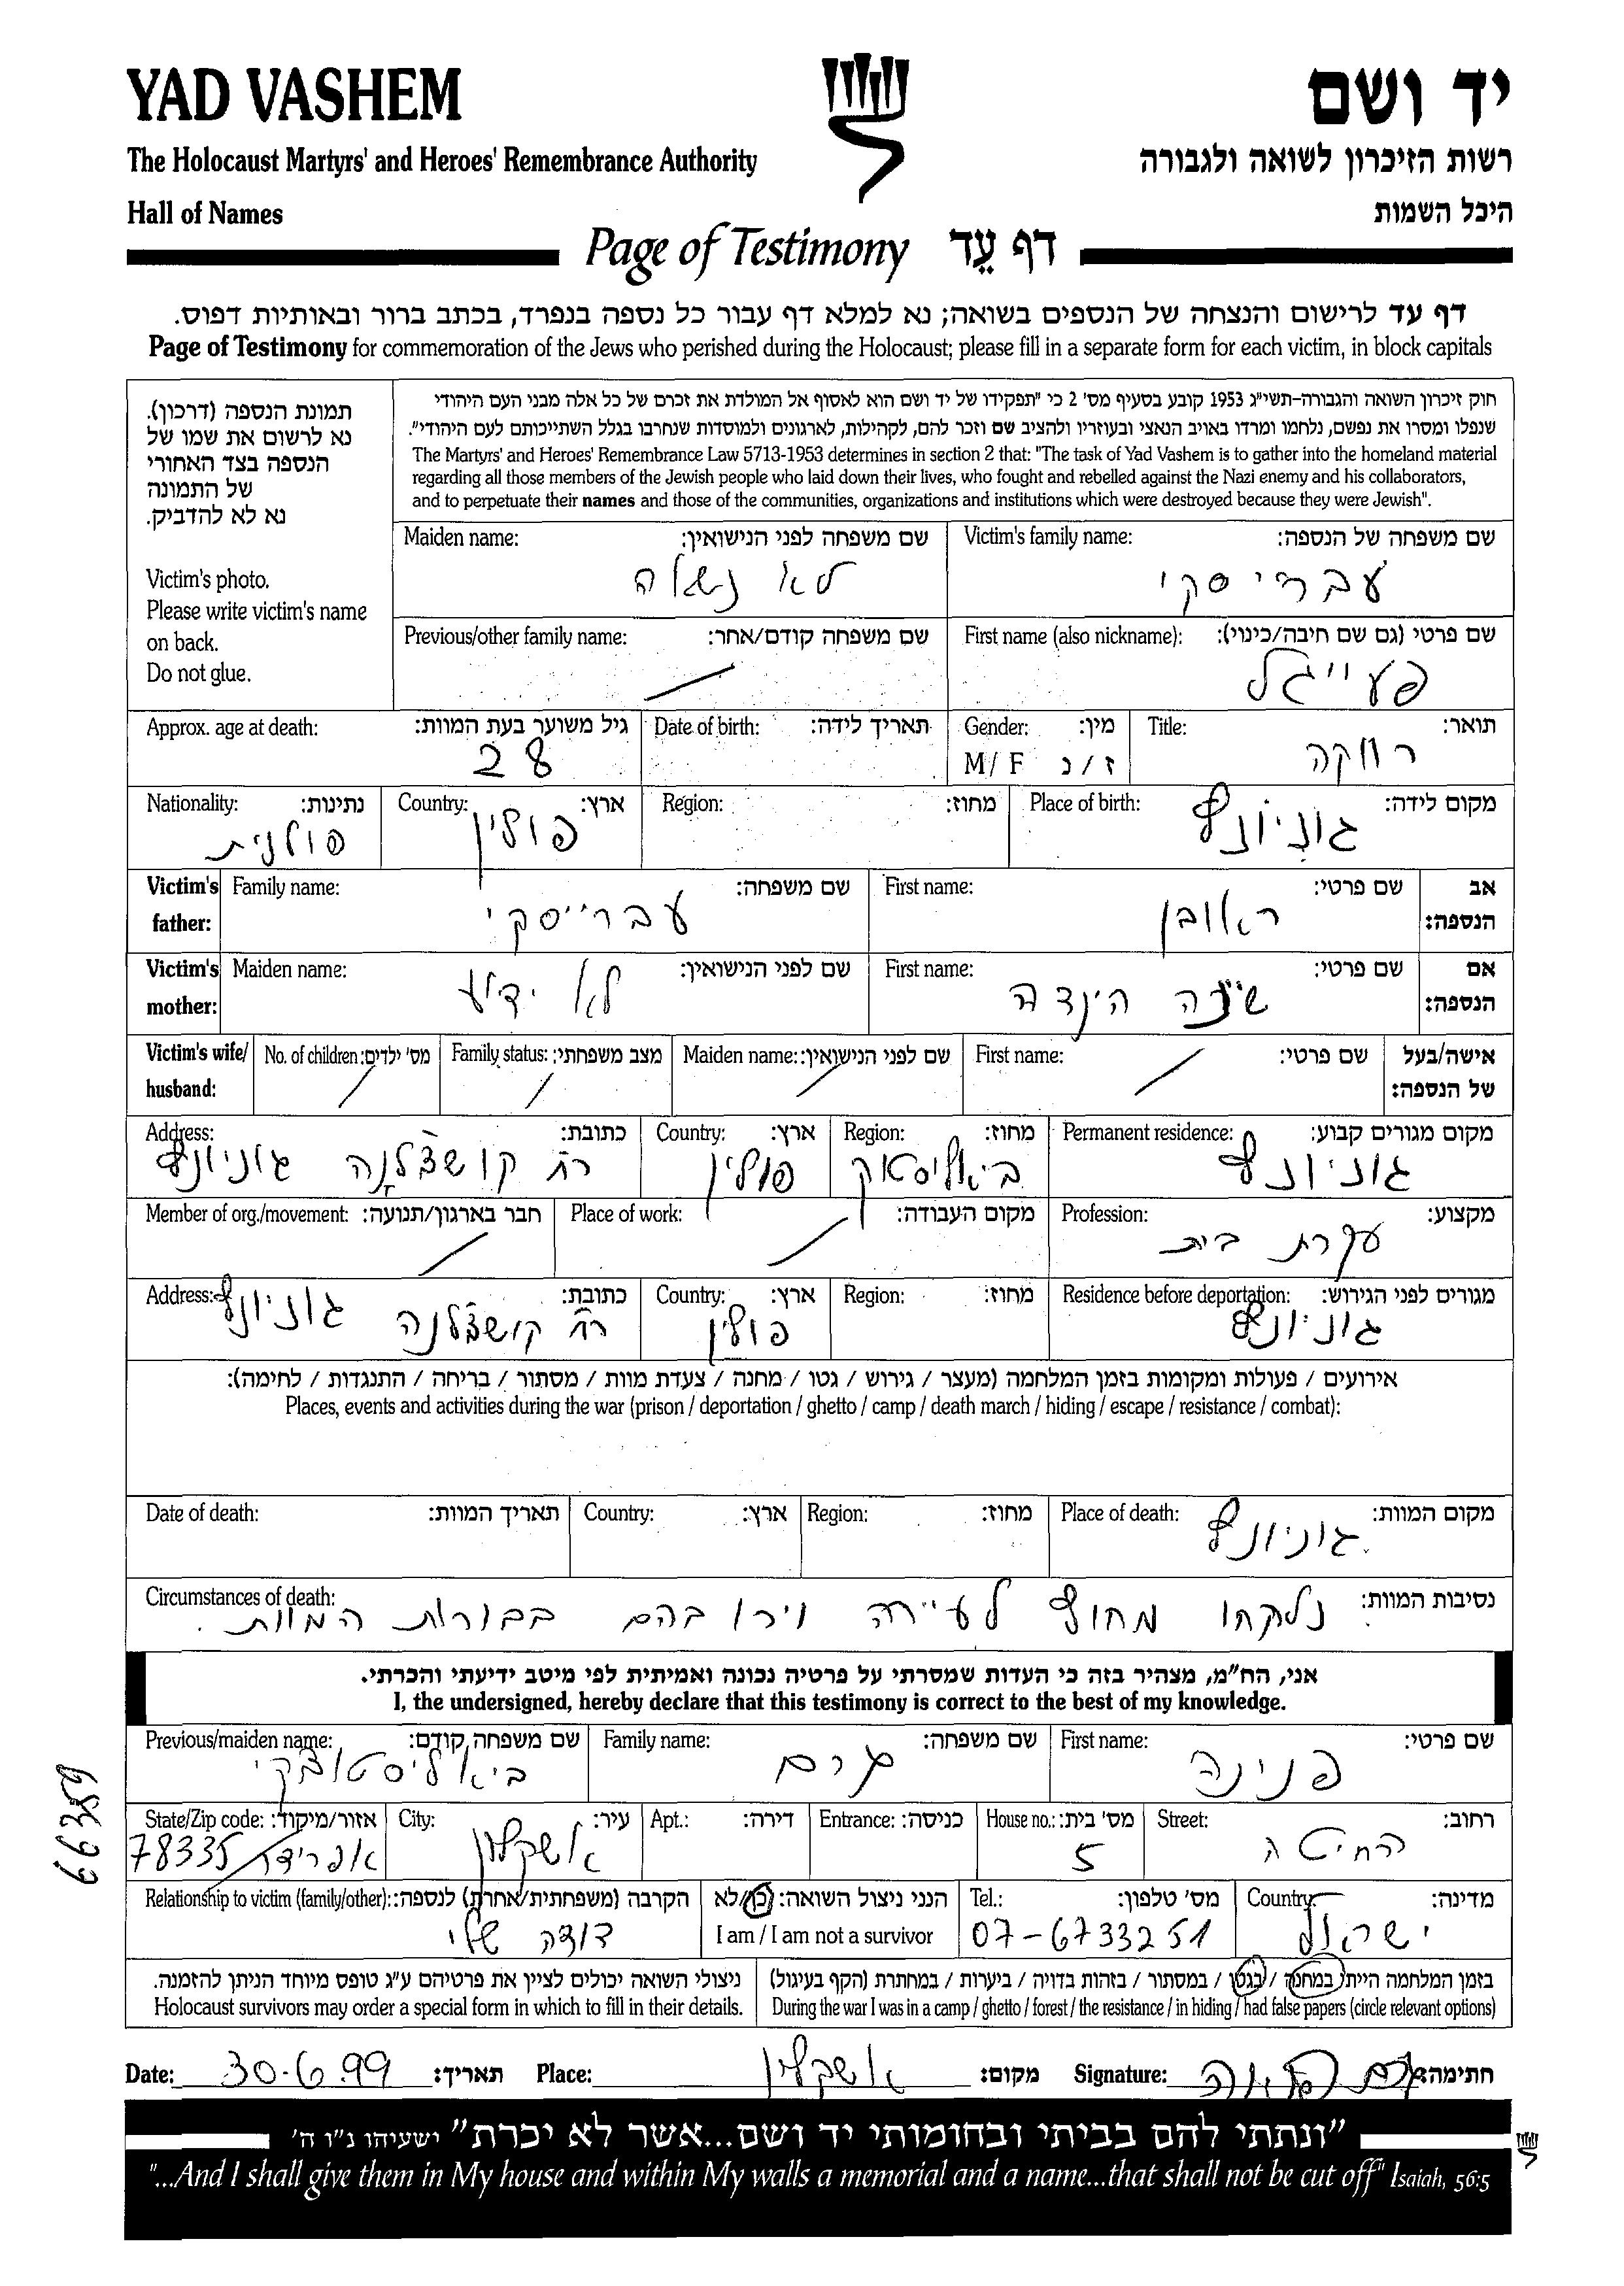 YAD VASHEM
יד ושם
The Holocaust Martyrs' and Heroes' Remembrance Authority
רשות הזיכרון לשואה ולגבורה
Hall of Names
היכל השמות
Page of Testimony דף עֵד
דף עד לרישום והנצחה של הנספים בשואה; נא למלא דף עבור כל נספה בנפרד, בכתב ברור ובאותיות דפוס.
Page of Testimony for commemoration of the Jews who perished during the Holocaust; please fill in a separate form for each victim, in block capitals
תמונת הנספה (דרכון).
נא לרשום את שמו של
הנספה בצד האחורי
של התמונה
נא לא להדביק.
Victim's photo.
Please write victim's name
on back.
Do not glue.
חוק זיכרון השואה והגבורה-תשי"ג 1953 קובע בסעיף מס' 2 כי "תפקידו של יד ושם הוא לאסוף אל המולדת את זכרם של כל אלה מבני העם היהודי
שנפלו ומסרו את נפשם, נלחמו ומרדו באויב הנאצי ובעוזריו ולהציב שם וזכר להם, לקהילות, לארגונים ולמוסדות שנחרבו בגלל השתייכותם לעם היהודי".
The Martyrs' and Heroes' Remembrance Law 5713-1953 determines in section 2 that: "The task of Yad Vashem is to gather into the homeland material
regarding all those members of the Jewish people who laid down their lives, who fought and rebelled against the Nazi enemy and his collaborators,
and to perpetuate their names and those of the communities, organizations and institutions which were destroyed because they were Jewish".
Victim's family name: שם משפחה של הנספה:
עברייסקי
Maiden name: שם משפחה לפני הנישואין:
לא נשאה
First name (also nickname): שם פרטי (גם שם חיבה/כינוי):
פעייגל
Previous/other family name: שם משפחה קודם/אחר:
Title: תואר:
רווקה
Gender: מין:
M/ F ז/נ
Date of birth: תאריך לידה:
Approx. age at death: גיל משוער בעת המוות:
28
Place of birth: מקום לידה:
גוניונדז
Region: מחוז:
Country: ארץ:
פולין
Nationality: נתינות:
פולנית
Victim's father: אב הנספה:
First name: שם פרטי:
ראובן
Family name: שם משפחה:
עברייסקי
Victim's mother: אם הנספה:
First name: שם פרטי:
שיינה הינדה
Maiden name: שם לפני הנישואין:
לא ידוע
Victim's wife/ husband: אישה/בעל של הנספה:
First name: שם פרטי:
Maiden name: שם לפני הנישואין:
Family status: מצב משפחתי:
No. of children: מס' ילדים:
Permanent residence: מקום מגורים קבוע:
גוניונדז
Region: מחוז:
ביאליסטוק
Country: ארץ:
פולין
Address: כתובת:
רח גוניונדז
Profession: מקצוע:
עקרת בית
Place of work: מקום העבודה:
Member of org./movement: חבר בארגון/תנועה:
Residence before deportation: מגורים לפני הגירוש:
גוניונדז
Region: מחוז:
Country: ארץ:
פולין
Address: כתובת:
רח גוניונדז
אירועים / פעולות ומקומות בזמן המלחמה (מעצר / גירוש / גטו / מחנה / צעדת מוות / מסתור / בריחה / התנגדות / לחימה):
Places, events and activities during the war (prison / deportation / ghetto / camp / death march / hiding / escape / resistance / combat):
Place of death: מקום המוות:
גוניונדז
Region: מחוז:
Country: ארץ:
Date of death: תאריך המוות:
Circumstances of death: נסיבות המוות:
נלקחו מחוץ לעיירה וירו בהם בבורות המוות.
אני, הח"מ, מצהיר בזה כי העדות שמסרתי על פרטיה נכונה ואמיתית לפי מיטב ידיעתי והכרתי.
I, the undersigned, hereby declare that this testimony is correct to the best of my knowledge.
First name: שם פרטי:
פנינה
Family name: שם משפחה:
Previous/maiden name: שם משפחה קודם:
ביאליסטוצקי
Street: רחוב:
החיטה
House no.: מס' בית:
5
Entrance: כניסה:
Apt.: דירה:
City: עיר:
אשקלון
State/Zip code: אזור/מיקוד:
אפרידר 78335
Country: מדינה:
ישראל
Tel.: מס' טלפון:
07-6733251
הנני ניצול השואה: כן/לא
I am / I am not a survivor
Relationship to victim (family/other): הקרבה (משפחתית/אחרת) לנספה:
דודה שלי
בזמן המלחמה הייתי במחנה / בגטו / במסתור / בזהות בדויה / ביערות / במחתרת (הקף בעיגול)
During the war I was in a camp / ghetto / forest / the resistance / in hiding / had false papers (circle relevant options)
ניצולי השואה יכולים לציין את פרטיהם ע"ג טופס מיוחד הניתן להזמנה.
Holocaust survivors may order a special form in which to fill in their details.
Date: 30.6.99 תאריך: Place: אשקלון מקום: Signature: חתימה:
"ונתתי להם בביתי ובחומותי יד ושם...אשר לא יכרת" ישעיהו נ"ו ה'
"...And I shall give them in My house and within My walls a memorial and a name...that shall not be cut off" Isaiah, 56:5
66359